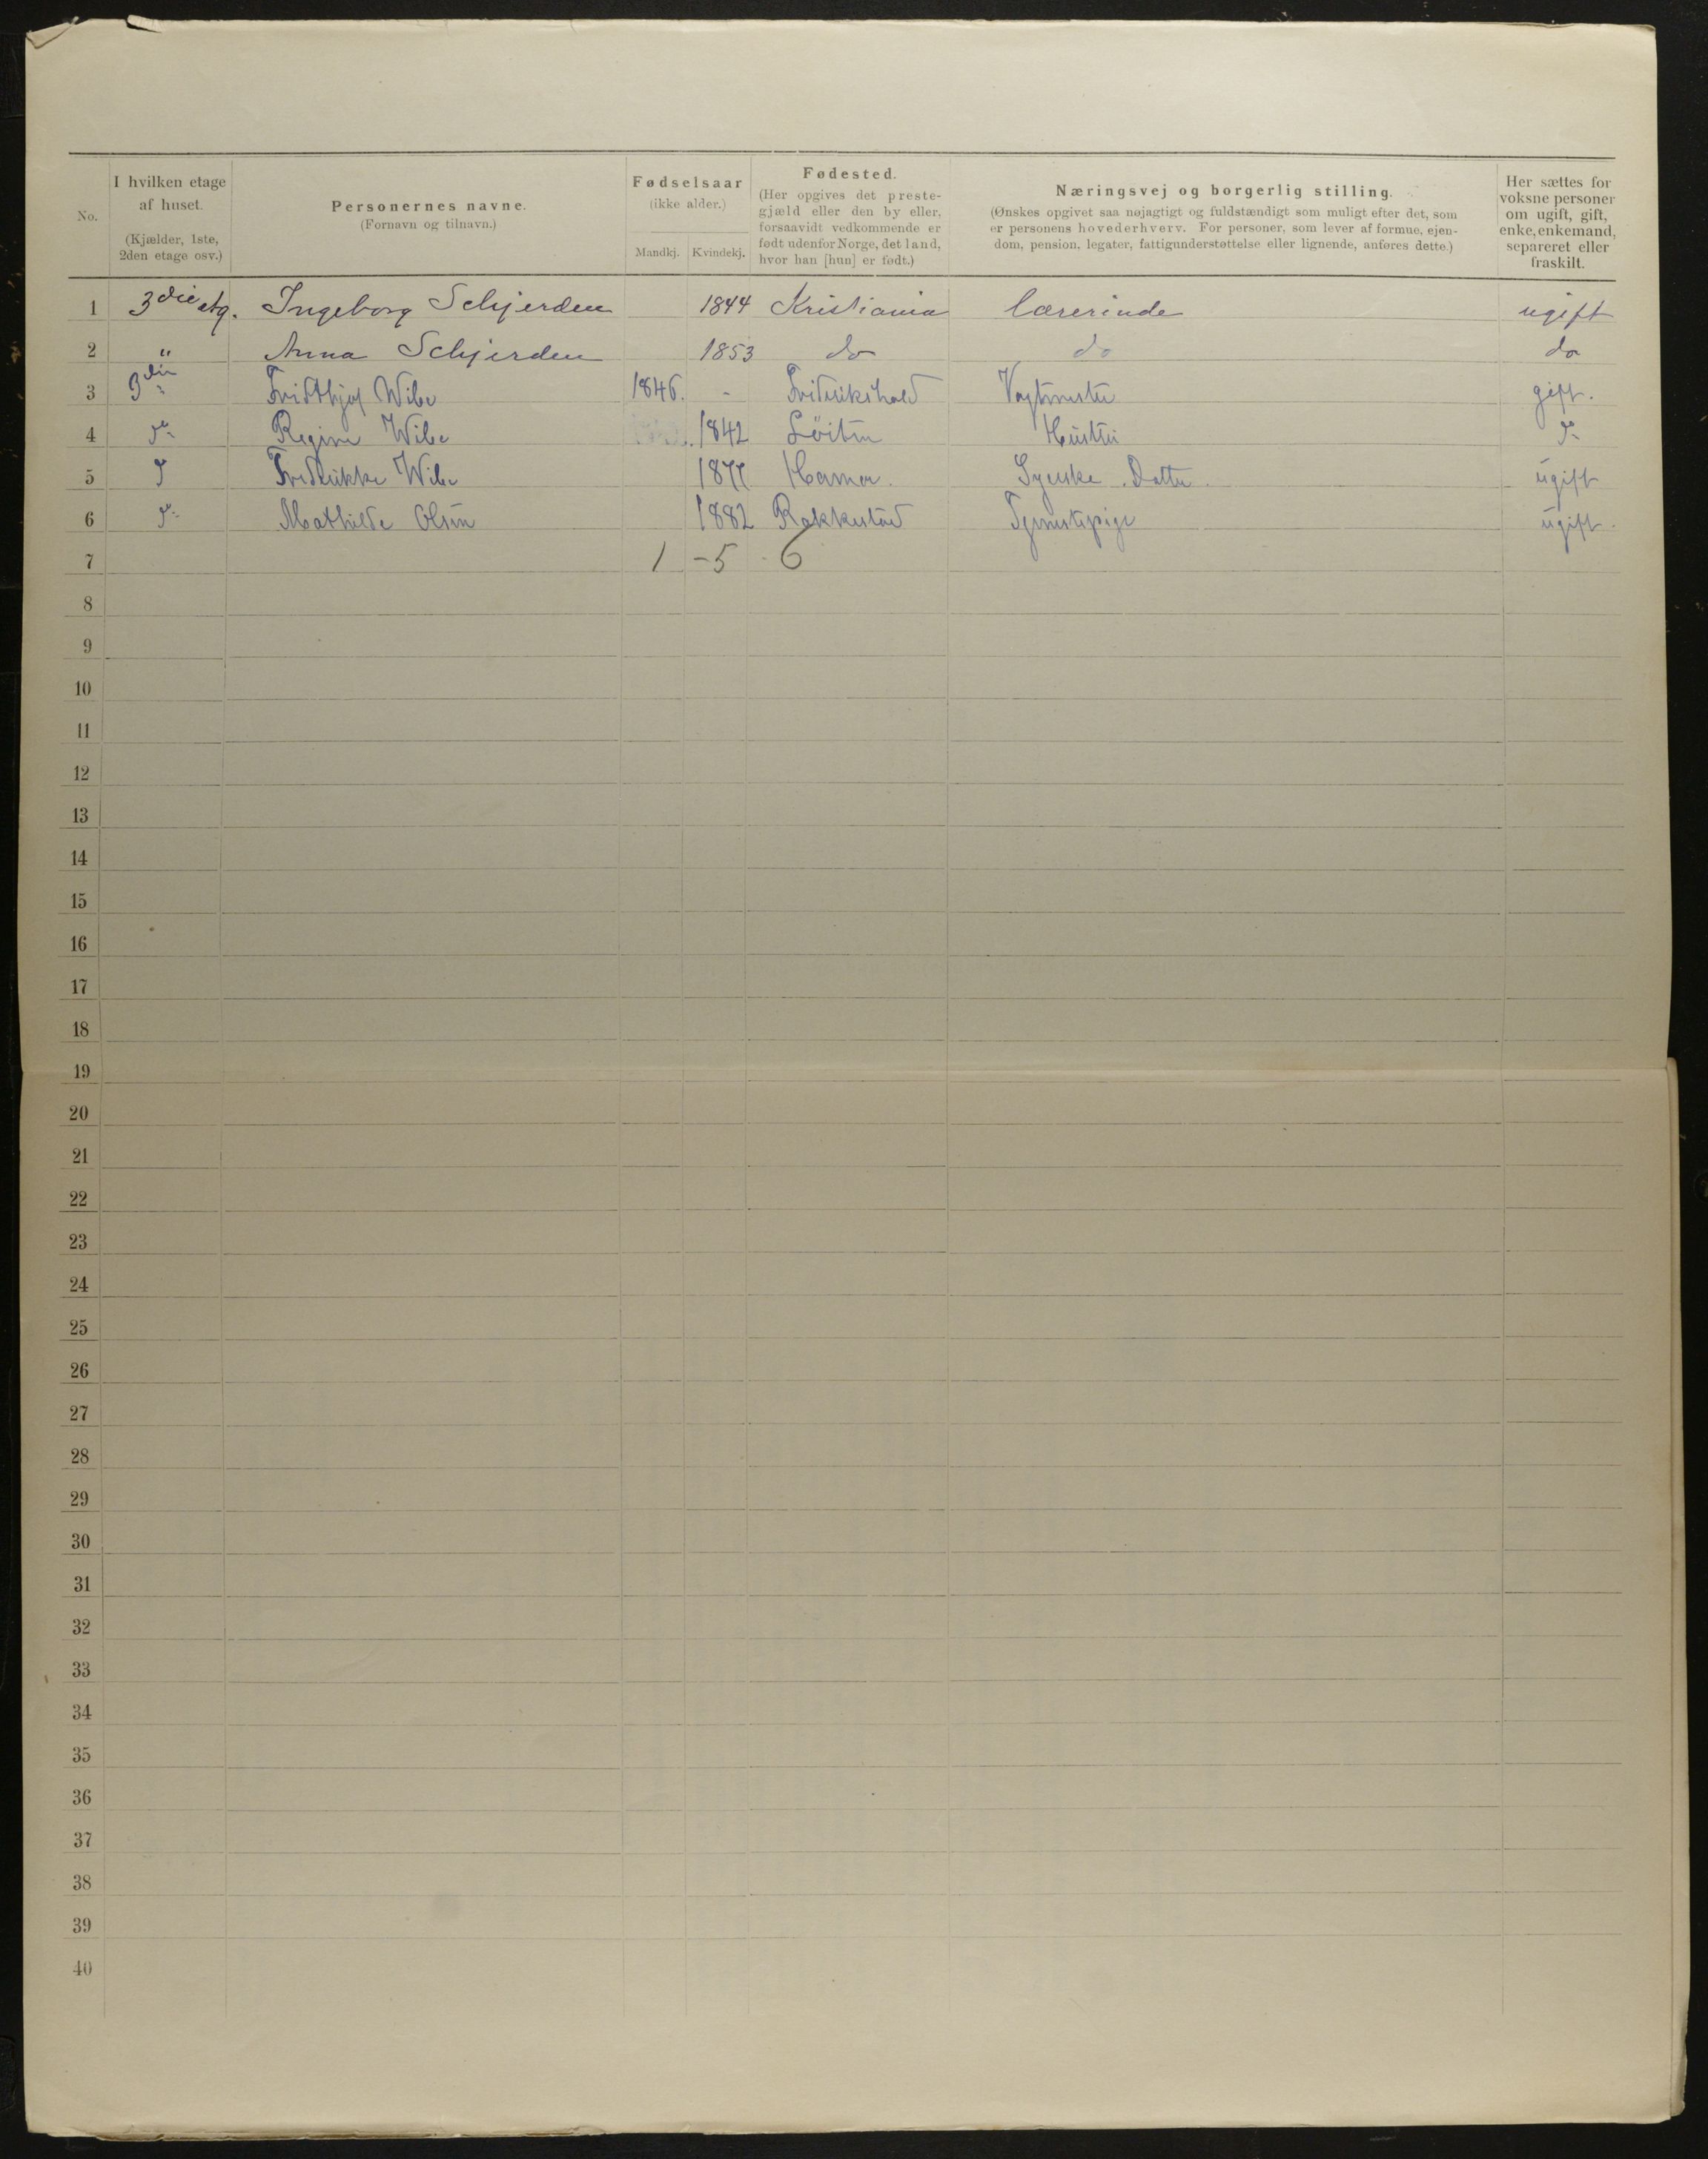 No.
I hvilken etage af huset. (Kjælder, 1ste, 2den etage osv.)
Personernes navne. (Fornavn og tilnavn.)
Fødselsaar (ikke alder.)
Mandkj. Kvindekj.
Fødested. (Her opgives det prestegjæld eller den by eller, forsaavidt vedkommende er født udenfor Norge, det land, hvor han [hun] er født.)
Næringsvej og borgerlig stilling. (Ønskes opgivet saa nøjagtigt og fuldstændigt som muligt efter det, som er personens hovederhverv. For personer, som lever af formue, ejendom, pension, legater, fattigunderstøttelse eller lignende, anføres dette.)
Her sættes for voksne personer om ugift, gift, enke, enkemand, separeret eller fraskilt.
1 3die etg. Ingeborg Schjerden 1844 Kristiania lærerinde ugift
2 " Anna Schjerden 1853 do do do
3 3die Fridthjof Wibe 1846. - Frideriks­hald Vagtmester gift.
4 do Regine Wibe 1842 Löiten Hustru do
5 do Fredrikke Wibe 1877 Hamar. Syerske. Datter. ugift
6 do Mathilde Olsen 1882 Rakkestad Tjenestepige ugift.
7 1 - 5 - 6
8
9
10
11
12
13
14
15
16
17
18
19
20
21
22
23
24
25
26
27
28
29
30
31
32
33
34
35
36
37
38
39
40